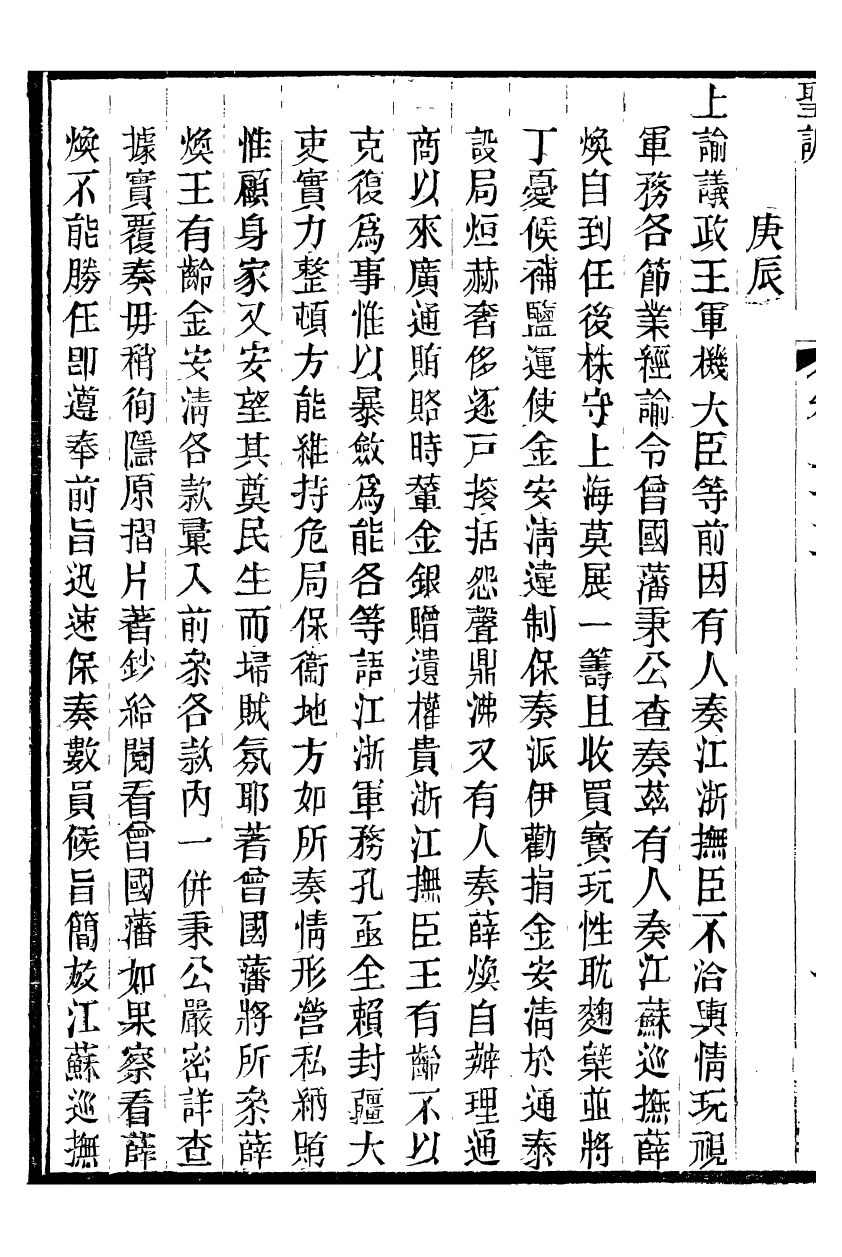 聖訓
庚辰
上諭議政王軍機大臣等前因有人奏江浙撫臣不洽輿情玩視
軍務各節業經諭令曾國藩秉公查奏茲有人奏江蘇巡撫薛
煥自到任後株守上海莫展一籌且收買寶玩性耽麴櫱並將
丁憂候補鹽運使金安淸違制保奏派伊勸捐金安淸於通泰
設局烜赫奢侈逐戸搜括怨聲鼎沸又有人奏薛煥自辦理通
商以來廣通賄賂時輦金銀贈遺權貴浙江撫臣王有齡不以
克復爲事惟以暴斂爲能各等語江浙軍務孔亟全賴封疆大
吏實力整頓方能維持危局保衞地方如所奏情形營私納賄
惟顧身家又安望其奠民生而埽賊氛耶著曾國藩將所叅薛
煥王有齡金安淸各款彙入前叅各款內一併秉公嚴密詳查
據實覆奏毋稍徇隱原摺片著鈔給閱看曾國藩如果察看薛
煥不能勝任卽遵奉前旨迅速保奏數員候旨簡放江蘇巡撫